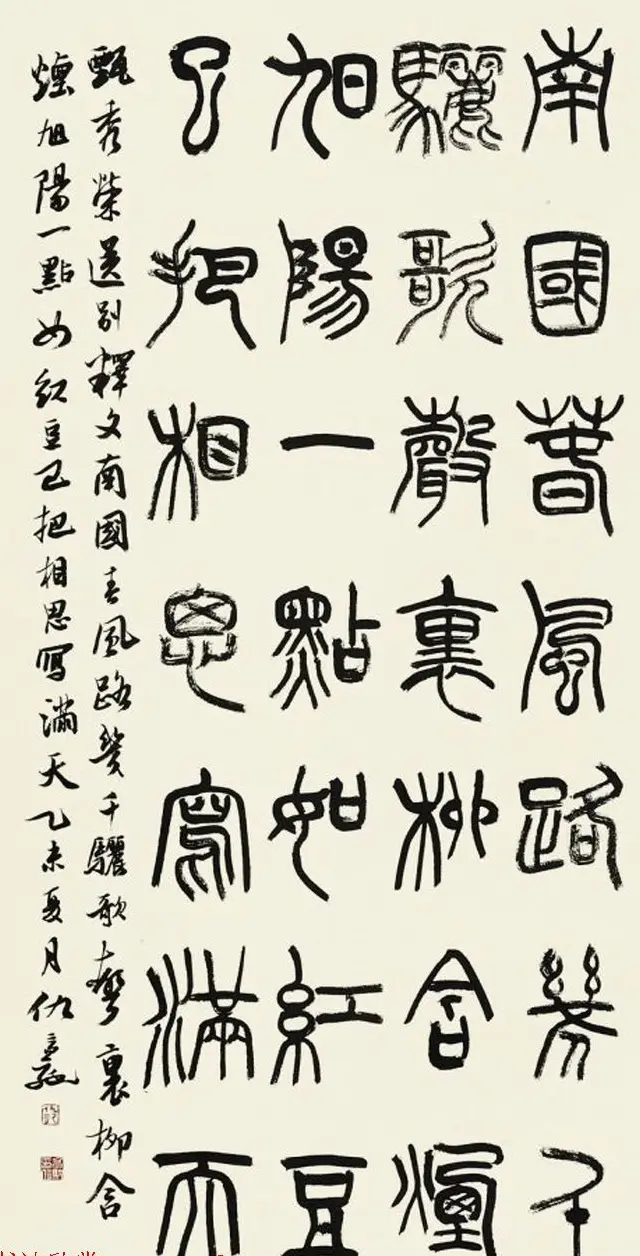 南國春風路幾千
驪歌聲裏柳含煙
旭陽一點如紅豆
已把相思寫滿天
甄秀榮送别釋文南國春風路幾千驪歌聲裏柳含
煙旭陽一點如紅豆已把相思寫滿天乙未夏月仇高馳